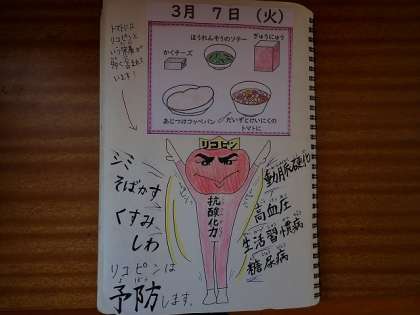 3月 7日 (火)
ほうれんそうのソテー
ぎゅうにゅう
かくチーズ
あじつけコッペパン
だいずとけいにくの
トマトに
トマトには
リコピンと
いう栄養が
多く含まれて
います!
リコピン
抗酸化力
シミ
そばかす
くすみ
しわ
動脈硬化
高血圧
生活習慣病
糖尿病
リコピンは
予防します。